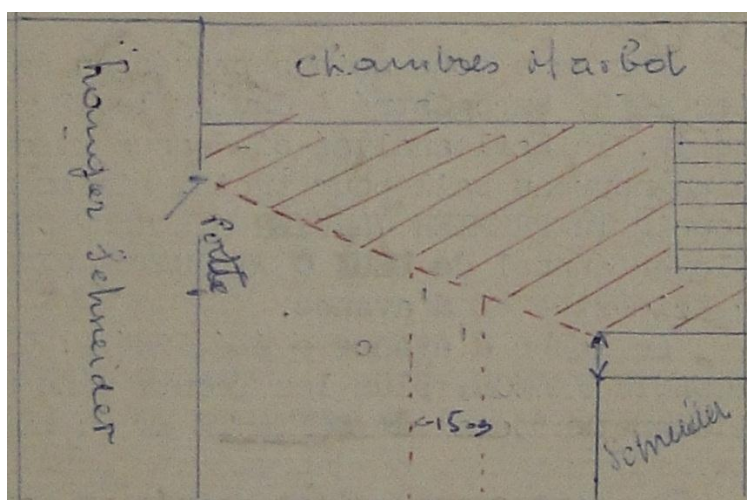 Chambres Marbot
hangar Schneider
Porte
C
<-150->
Schneider